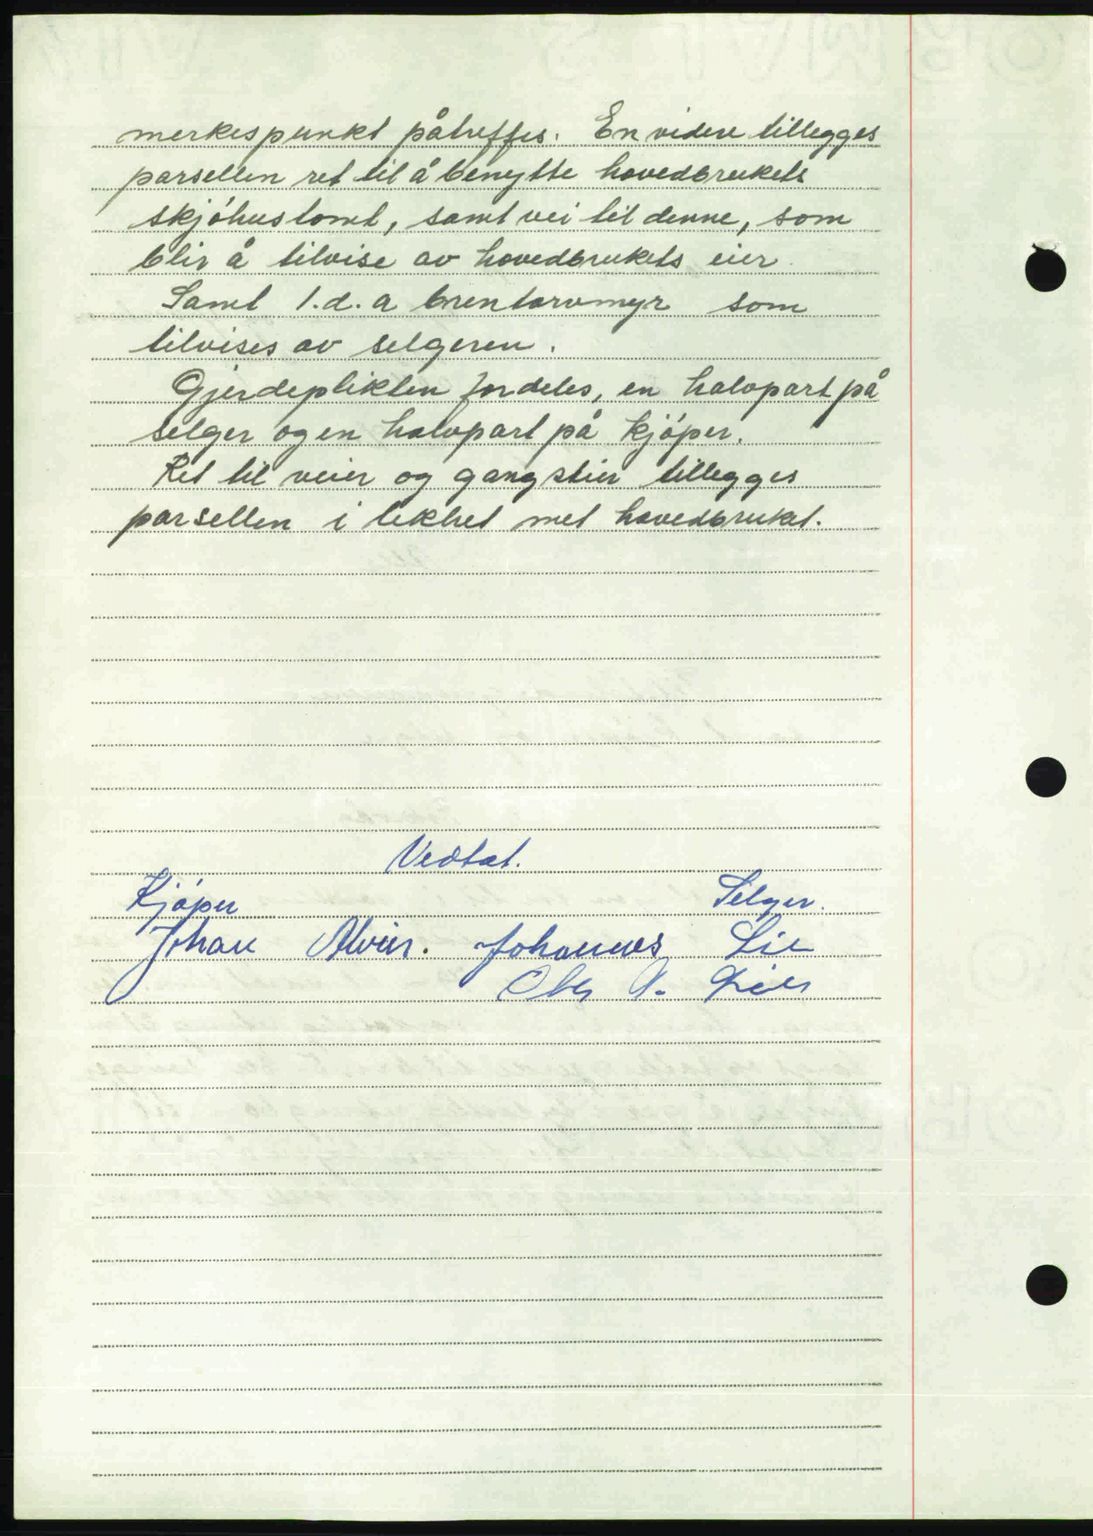 merkespunkt påtreffes. En videre tillegges
parsellen ret til å benytte hovedbrukets
skjøhustomt, samt vei til denne, som
blir å tilvise av hovedbrukets eier
Samt 1.d.a brentorvmyr som
tilvises av selgeren.
Gjerdeplikten fordeles, en halvpart på
selger og en halvpart på kjøper.
Ret til veier og gangstier tillegges
parsellen i likhet met hovedbruket.
Vedtat.
Kjøper Selger.
Johan Alvier. Johannes Lie